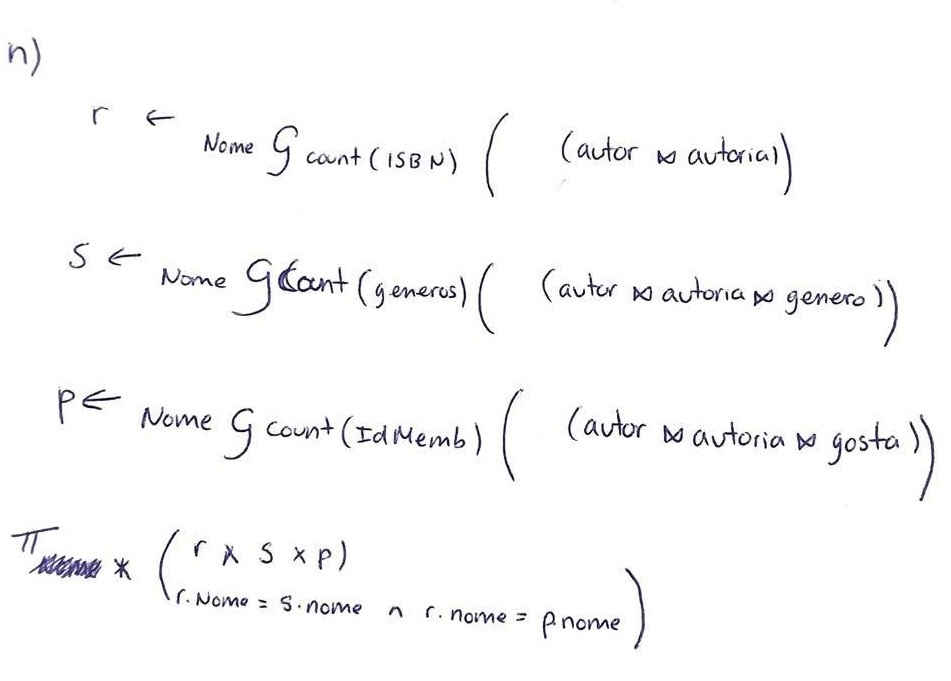 n)
r ← Nome G count(ISBN) ( (autor ⋈ autoria))
S ← Nome G Count(generos) ( (autor ⋈ autoria ⋈ genero))
p ← Nome G count(IdMemb) ( (autor ⋈ autoria ⋈ gosta))
π * (r x S x p)
r.Nome = S.nome ∧ r.nome = p.nome)